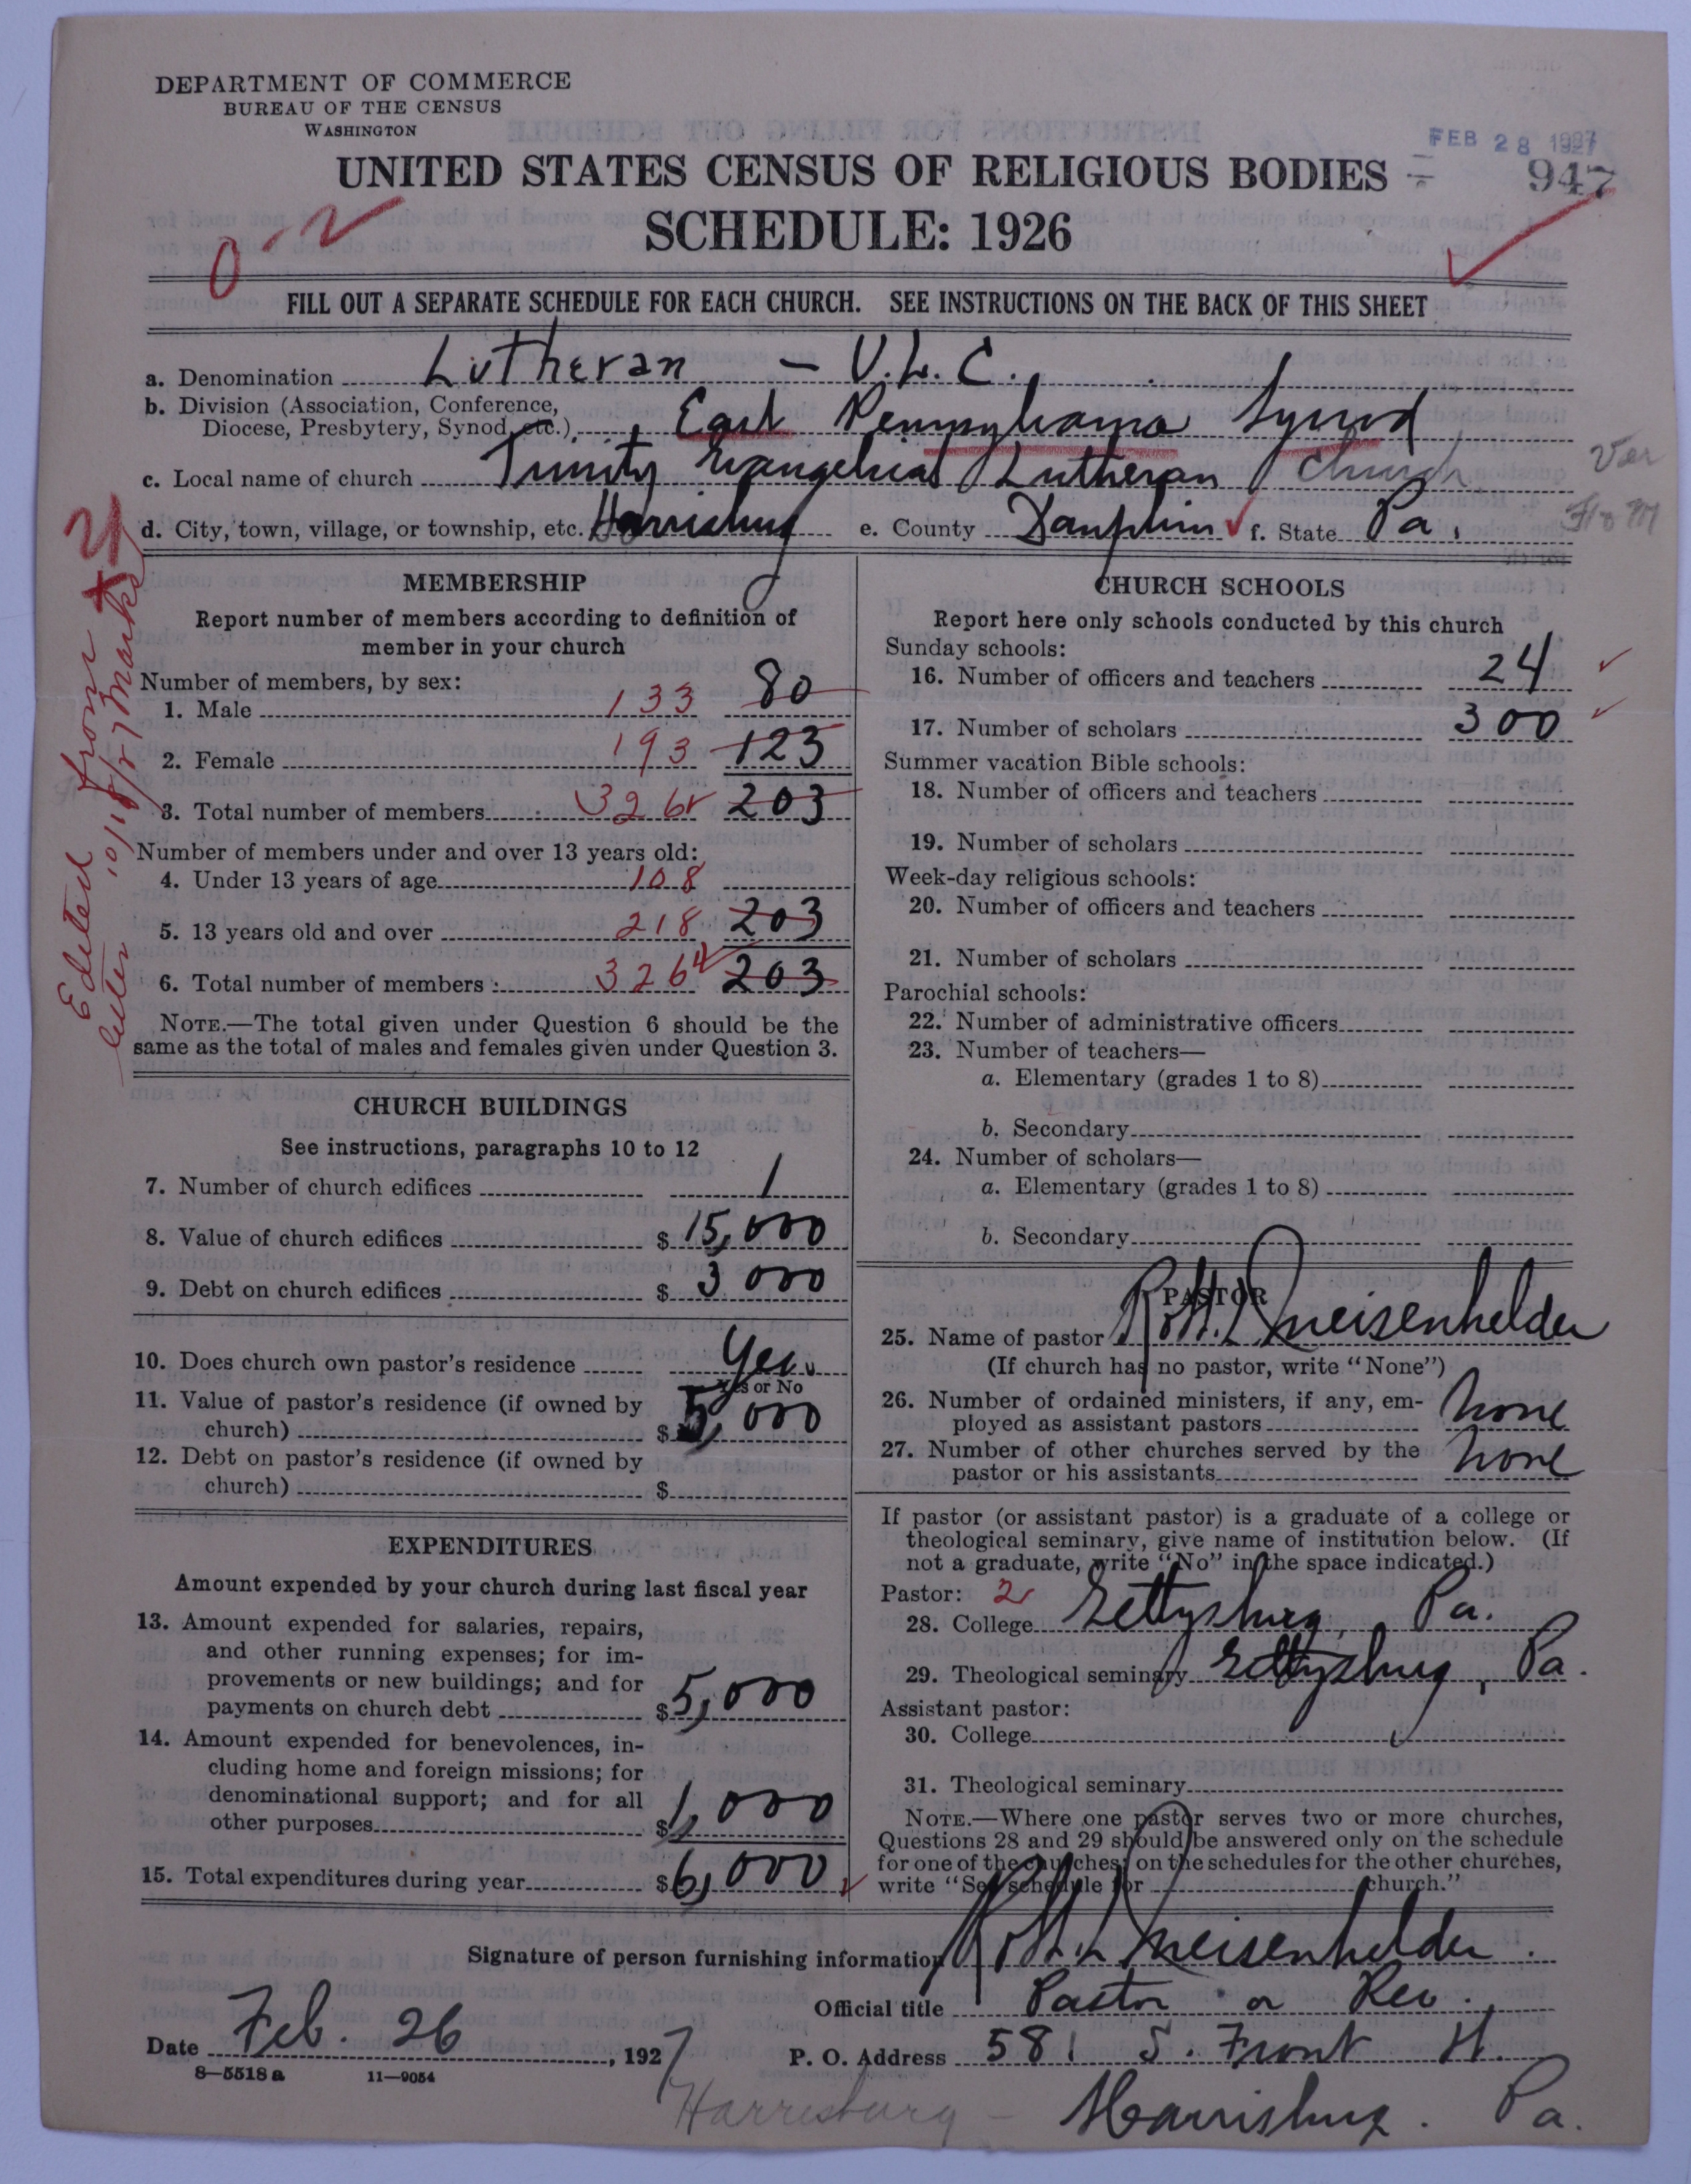 DEPARTMENT OF COMMERCE
BUREAU OF THE CENSUS
WASHINGTON
FEB 28 1927
947
UNITED STATES CENSUS OF RELIGIOUS BODIES
SCHEDULE: 1926
FILL OUT A SEPARATE SCHEDULE FOR EACH CHURCH. SEE INSTRUCTIONS ON THE BACK OF THIS SHEET
a. Denomination Lutheran - U.L.C.
b. Division (Association, Conference,
Diocese, Presbytery, Synod, etc.) East Pennsylvania Synod
c. Local name of church Trinity Evangelical Lutheran Church
d. City, town, village, or township, etc. Harrisburg e. County Dauphin f. State Pa.
Edited from
letter 10/18/27 Marks
MEMBERSHIP
Report number of members according to definition of
member in your church
Number of members, by sex:
1. Male 133 80
2. Female 193 123
3. Total number of members 326 203
Number of members under and over 13 years old:
4. Under 13 years of age 108
5. 13 years old and over 218 203
6. Total number of members 326 203
NOTE.—The total given under Question 6 should be the
same as the total of males and females given under Question 3.
CHURCH BUILDINGS
See instructions, paragraphs 10 to 12
7. Number of church edifices 1
8. Value of church edifices $ 15,000
9. Debt on church edifices $ 3000
10. Does church own pastor's residence Yes
Yes or No
11. Value of pastor's residence (if owned by
church) $ 5,000
12. Debt on pastor's residence (if owned by
church) $
EXPENDITURES
Amount expended by your church during last fiscal year
13. Amount expended for salaries, repairs,
and other running expenses; for im-
provements or new buildings; and for
payments on church debt $ 5,000
14. Amount expended for benevolences, in-
cluding home and foreign missions; for
denominational support; and for all
other purposes $ 1,000
15. Total expenditures during year $ 6,000
CHURCH SCHOOLS
Report here only schools conducted by this church
Sunday schools:
16. Number of officers and teachers 24
17. Number of scholars 300
Summer vacation Bible schools:
18. Number of officers and teachers
19. Number of scholars
Week-day religious schools:
20. Number of officers and teachers
21. Number of scholars
Parochial schools:
22. Number of administrative officers
23. Number of teachers—
a. Elementary (grades 1 to 8)
b. Secondary
24. Number of scholars—
a. Elementary (grades 1 to 8)
b. Secondary
PASTOR
25. Name of pastor Robt. L. Meisenhelder
(If church has no pastor, write "None")
26. Number of ordained ministers, if any, em-
ployed as assistant pastors None
27. Number of other churches served by the
pastor or his assistants None
If pastor (or assistant pastor) is a graduate of a college or
theological seminary, give name of institution below. (If
not a graduate, write "No" in the space indicated.)
Pastor: 2
28. College Gettysburg, Pa.
29. Theological seminary Gettysburg, Pa.
Assistant pastor:
30. College
31. Theological seminary
NOTE.—Where one pastor serves two or more churches,
Questions 28 and 29 should be answered only on the schedule
for one of the churches; on the schedules for the other churches,
write "See schedule for church."
Signature of person furnishing information Robt. L. Meisenhelder.
Official title Pastor or Rev.
Date Feb. 26, 1927 P. O. Address 581 S. Front St.
8—5518a 11—9054
Harrisburg - Harrisburg. Pa.